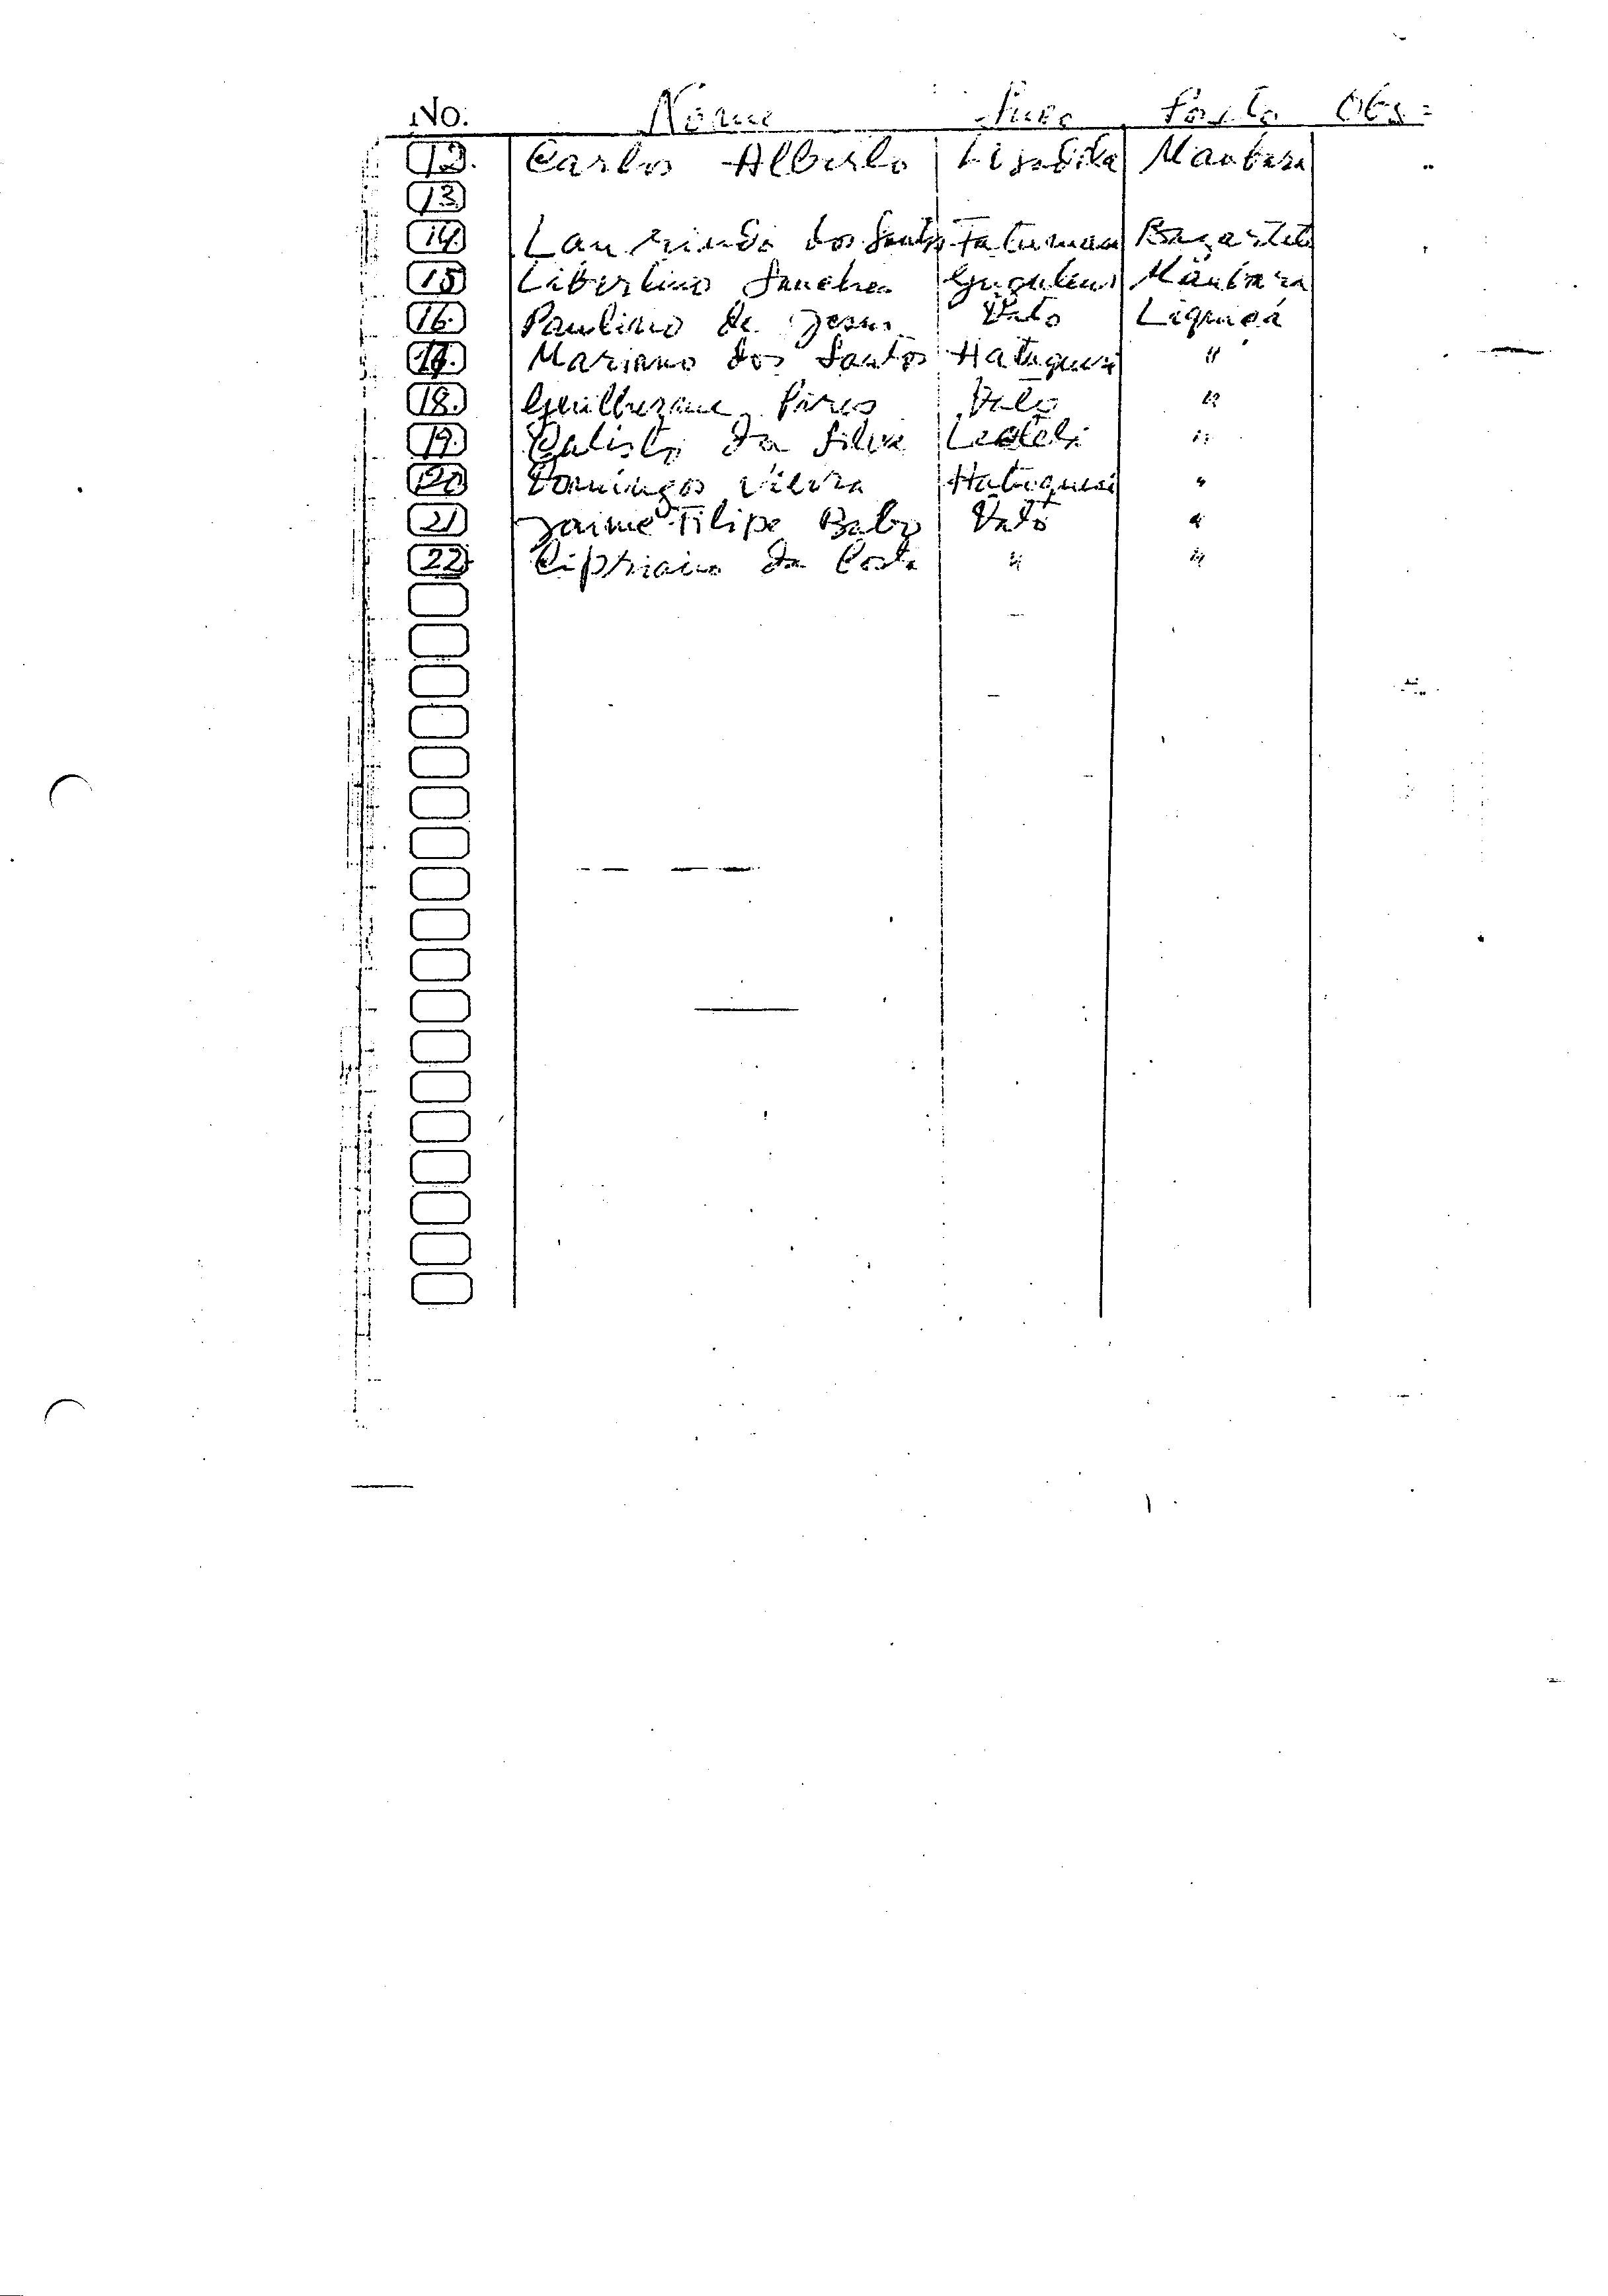 No. Nome Suco Posto Obs:
12. Carlos Alberto Maubara
13.
14. Laurindo dos Santos Fatumasi Bazartete
15. Libertino Sanches Guguleur Maubara
16. Paulino de Jesus Dato Liquiçá
17. Mariano dos Santos Hatuquesi "
18. Guilherme Pires Dato "
19. Calisto da Silva Leoteli "
20. Domingos Vieira Hatuquesi "
21 Jaime Filipe Babo Dato "
22. Cipriano da Costa " "